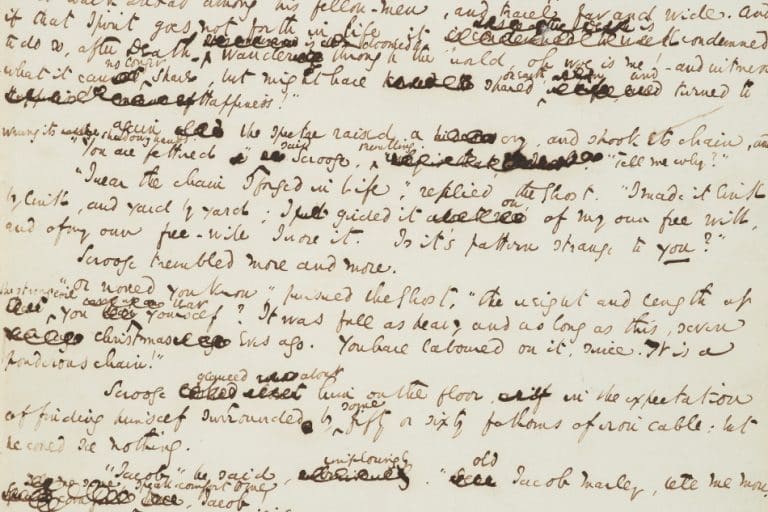 walk abroad among his fellow-men, and travel far and wide. And
if that Spirit goes not forth in life it is condemned
to do so, after Death. It is doomed to wander through the world, oh woe is me! - and witness
what it cannot share, but might have shared on earth, and turned to
Happiness!"
again the spectre raised a cry, and shook its chain, and
wrung its shadowy hands.
"You are fettered" said Scrooge, trembling. "Tell me why?"
"I wear the chain I forged in life," replied the Ghost. "I made it link
by link, and yard by yard; I girded it on of my own free will,
and of my own free-will I wore it. Is it's pattern strange to you?"
Scrooge trembled more and more.
"Or would you know" pursued the Ghost, "the weight and length of
the strong coil you bear yourself? It was full as heavy and as long as this, seven
Christmas Eves ago. You have laboured on it, since. It is a
Ponderous chain!"
Scrooge glanced about him on the floor, in the expectation
of finding himself surrounded by some fifty or sixty fathoms of iron cable: but
he could see nothing.
"Jacob" he said, imploringly. "old Jacob Marley, tell me more.
Speak comfort to me, Jacob